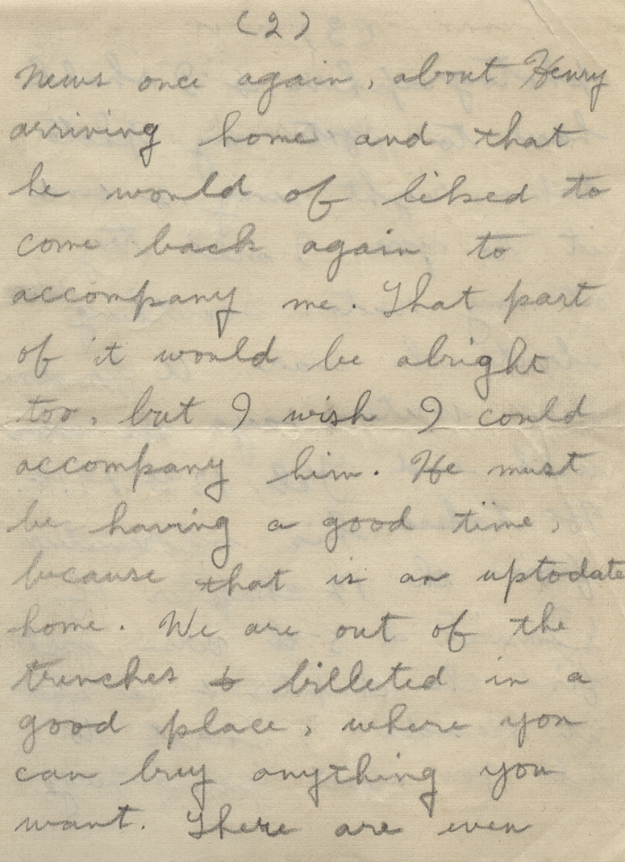 (2)
news once again, about Henry
arriving home and that
he would of liked to
come back again to
accompany me. That part
of it would be alright
too, but I wish I could
accompany him. He must
be having a good time,
because that is an uptodate
home. We are out of the
trenches & billeted in a
good place, where you
can buy anything you
want. There are even